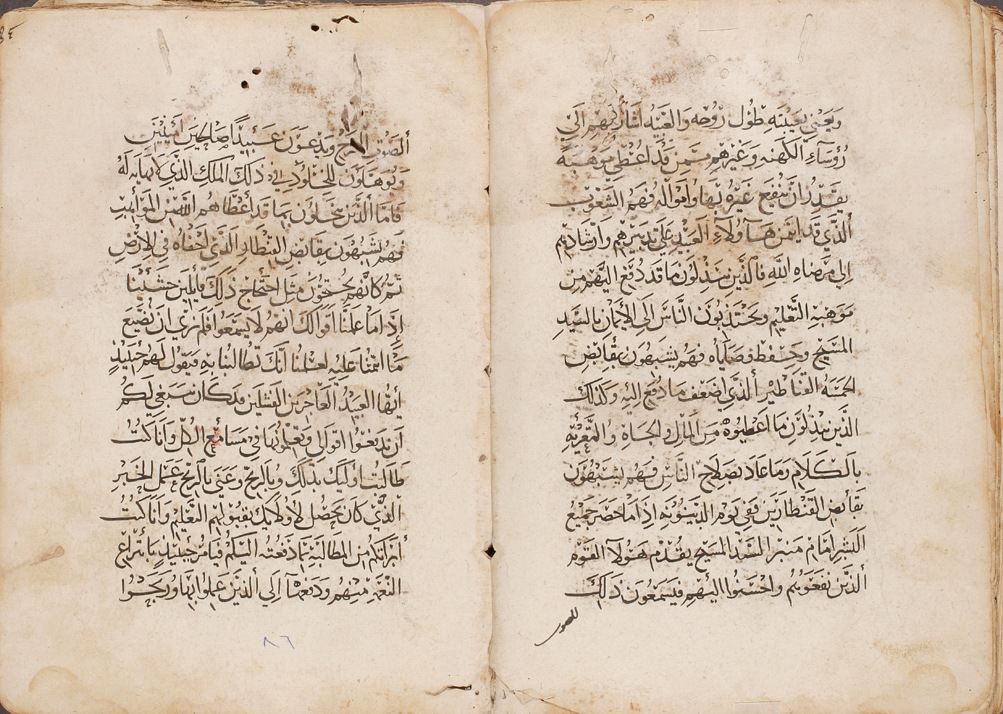 ويعني بغيبته طول روحه والعبد اشار بهم الى
روساء الكهنه وغيرهم ممن قد اعطي موهبة
يقدر ان ينفع غيره بها وامواله فهم الشعوب
الذي قد ايتمن هاولاء العبيد على تدبيرهم وارشادهم
الى مرضاه الله فالذين يبذلون ما قد دفع اليهم من
موهبة التعليم ويجتذبون الناس الى الايمان بالسيد
المسيح وحفظ وصاياه فهم يشبهون بقابض
الخمسة القناطير الذي اضعف ما دفع اليه وكذلك
الذين يبذلون ما اعطيوه من المال والجاه والتعزيه
بالكلام وما عاد بصلاح الناس فهم يشبهون
بقابض القنطارين ففي يوم الدينونه اذا ما حضر جميع
البشر امام منبر السيد المسيح يقدم هولاء القوم
الذين نفعوهم واحسنوا اليهم فيسمعون ذلك
الصوت
الصوت الفرح ويدعون عبيدا صالحين امينين
ويوهلون للخلود في ذلك الملك الذي لا نهايه له
فاما الذين يبخلون بما قد اعطاهم الله من المواهب
فهم يشبهون بقابض القنطار الذي اخفاه في الارض
ثم كانهم يحتجون مثل احتجاج ذلك قايلين حيث اننا
اذا ما علمنا اقوالك انهم لا يسمعوا فلم نري ان نضيع
ما ايتمنا عليه لعلمنا انك تطالبنا به فيقول لهم حينيذ
ايها العبيد العاجزين الفشلين قد كان ينبغي لكم
ان تدفعوا اقوالي وتعلموها في مسامع الكل وانا كنت
طالبت اوليك بذلك وبالربح وعني بالربح عمل الخير
الذي كان يحصل لاولايك بقبولهم التعليم وانا كنت
ابراتكم من المطالبة بما دفعته اليكم فيامر حينيذ بانتزاع
النعمة منهم ودفعها الى الذين عملوا بها وربحوا
٨٦